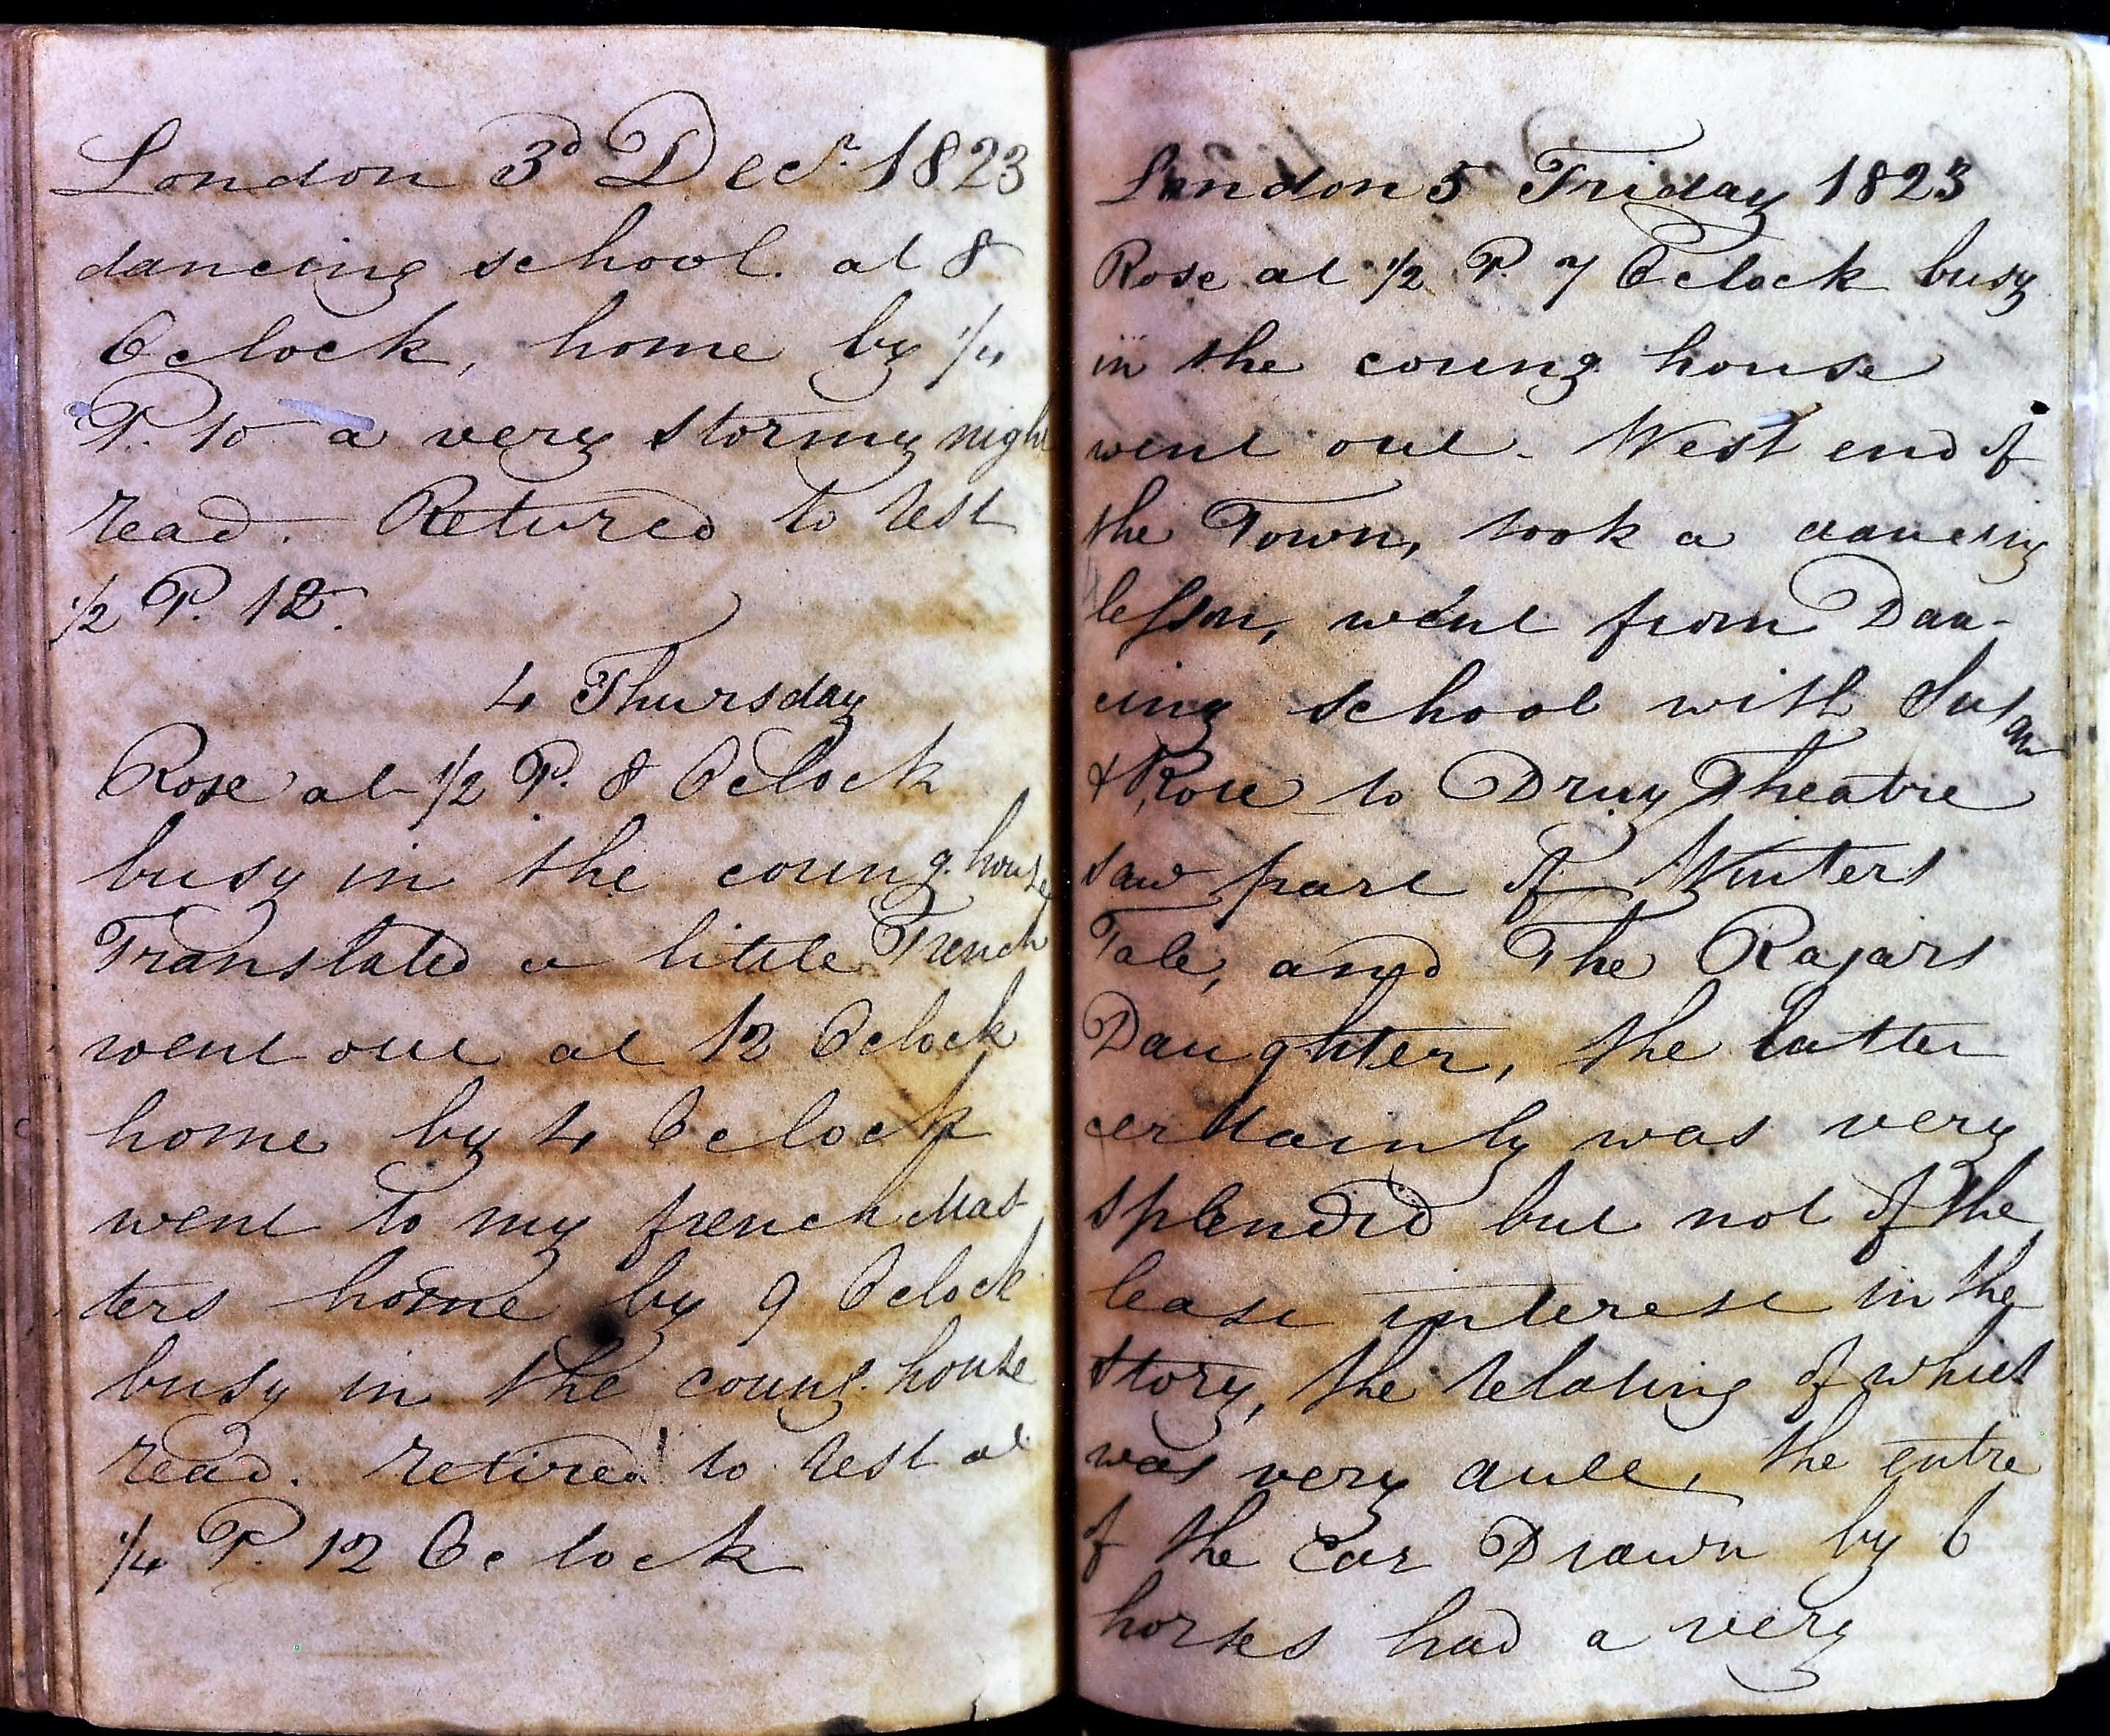 London 3d Decr. 1823
dancing school. at 8
Oclock, home by 1/4
P. 10 a very stormy night
read. Retured to rest
1/2 P. 12.
4 Thursday
Rose at 1/2 P. 8 Oclock
busy in the coung. house
Translated a little French
went out at 12 Oclock
home by 4 Oclock
went to my french Mas
ters home by 9 Oclock
busy in the coung. house
read. retired to rest at
1/4 P. 12 Oclock
London 5 Friday 1823
Rose at 1/2 P. 7 Oclock busy
in the coung house
went out. West end of
the Town, took a dancing
lesson, went from Dan-
cing school with Susan
& Rose to Drury Theatre
saw part of Winters
Tale, and The Rajars
Daughter, the latter
certainly was very
splendid but not of the
least interest in the
story, the relating of which
was very dull, the entre
of the Car Drawn by 6
horses had a very